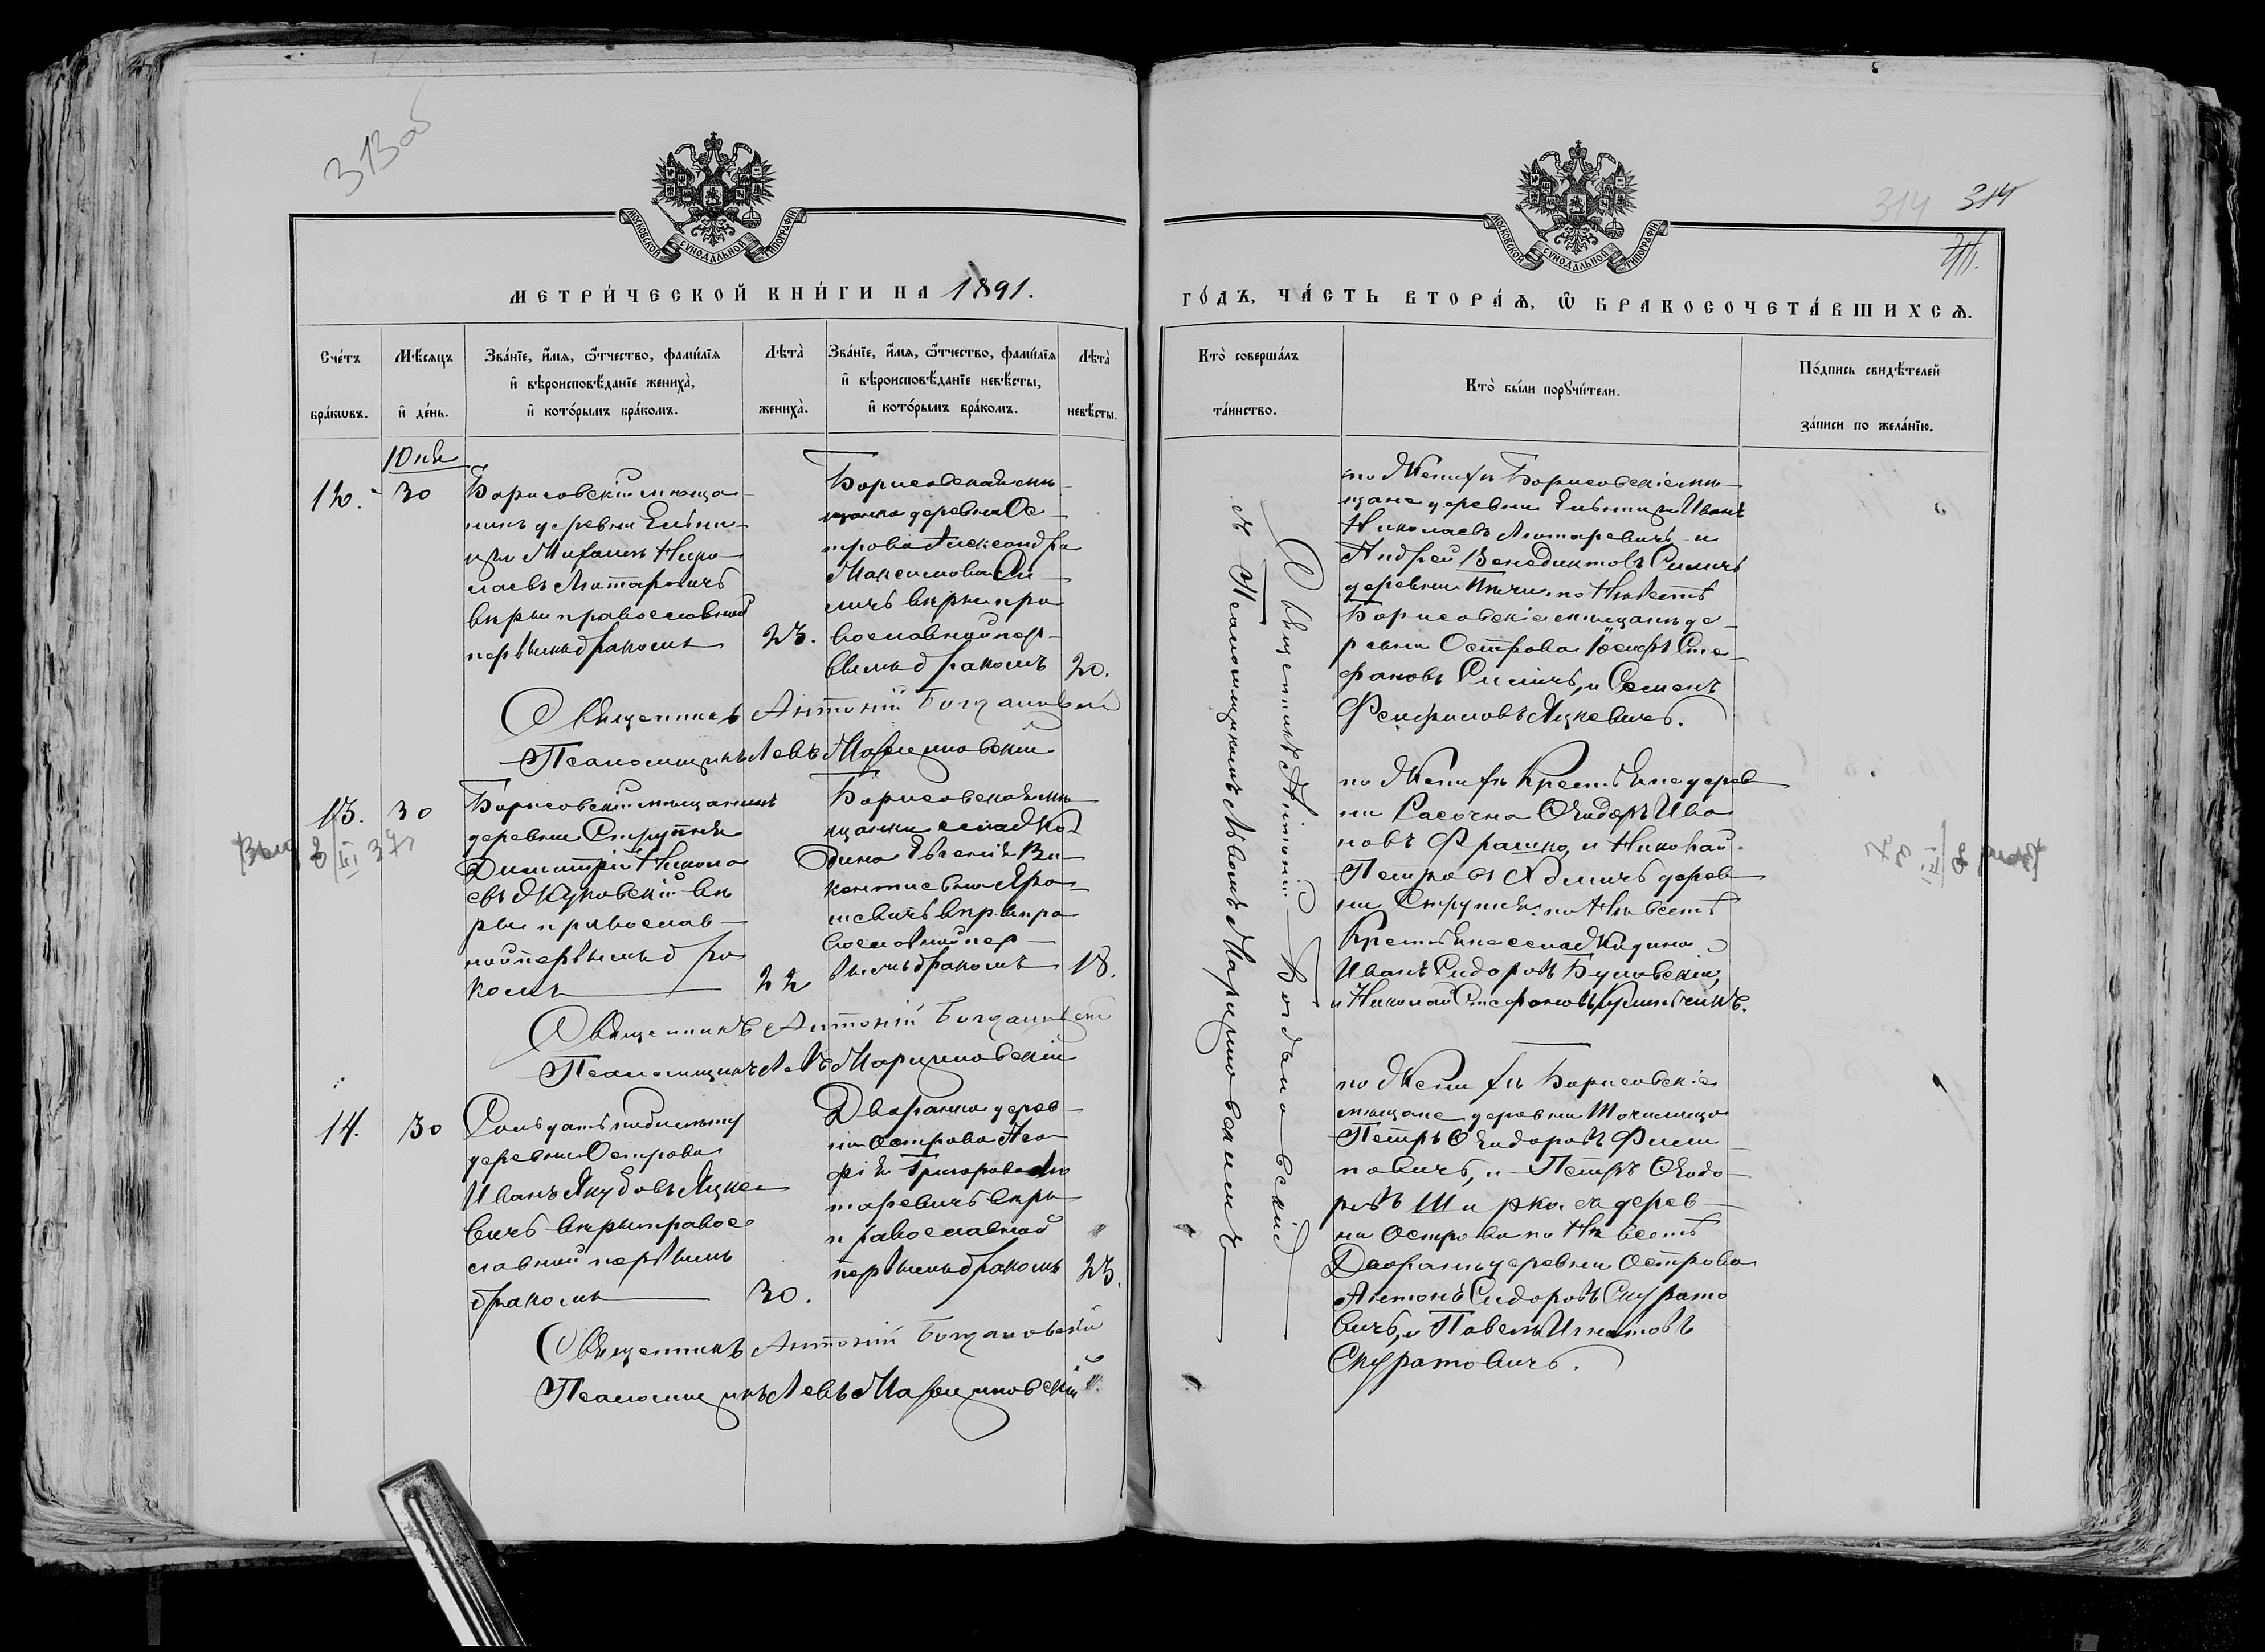 313об
МОСКОВСКОЙ СѴНОДАЛЬНОЙ ТИПОГРАФІИ
МЕТРИ́ЧЕСКОЙ КНИ́ГИ НА 1891.
Сче́тъ бра́кѡвъ.
Мѣ́сѧцъ и҆ де́нь.
Зва́нїе, и҆́мѧ, ѻ҆́тчество, фами́лїѧ
и҆ вѣроисповѣ́данїе жениха̀,
и҆ кото́рымъ бра́комъ.
Лѣта̀ жениха̀.
Зва́нїе, и҆́мѧ, ѻ҆́тчество, фами́лїѧ
и҆ вѣроисповѣ́данїе невѣ́сты,
и҆ кото́рымъ бра́комъ.
Лѣта̀ невѣ́сты.
Юня
12.
30
Борисовскій мѣща-
нинъ деревни Ельни-
цы Михаилъ Нико-
лаевъ Лютаревичъ
вѣры православной
первымъ бракомъ
23.
Борисовская мѣ-
щанка деревни Ос-
трова Александра
Максимова Си-
личъ вѣры пра
вославной пер-
вымъ бракомъ
20.
Священникъ Антоній Богдановскій
Псаломщикъ Левъ Марциновскій
13.
30
Борисовскій мѣщанинъ
деревни Струпня
Димитрій Никола
евъ Жуковскій вѣ
ры православ-
ной первымъ бра
комъ
22
Борисовская мѣ
щанка села Жо
дина Евгенія Ви-
кентиевна Яро-
шевичъ вѣры пра
вославной пер-
вымъ бракомъ
18.
Священникъ Антоній Богдановскій
Псаломщикъ Левъ Марциновскій
14.
30
деревни Острова
Иванъ Якубовъ Яцке
вичъ вѣры правос
лавной первымъ
бракомъ
30.
Дворянка дерев-
ни Острова
Григорова Лю
таревичъ вѣры
православной
первымъ бракомъ
23.
Священникъ Антоній Богдановскій
Псаломщикъ Левъ Марциновскій
314 314
МОСКОВСКОЙ СѴНОДАЛЬНОЙ ТИПОГРАФІИ
ГО́ДЪ, ЧА́СТЬ ВТОРА́Ѧ, Ѡ҆ БРАКОСОЧЕТА́ВШИХСѦ.
Кто̀ соверша́лъ та́инство.
Кто̀ бы́ли порꙋчи́тели.
По́дпись свидѣ́телей
за́писи по жела́нїю.
Священникъ Антоній Богдановскій
съ Псаломщикомъ Львомъ Марциновскимъ
по Женихѣ Борисовскіе мѣ-
щане деревни Ельницы Иванъ
Николаевъ Лютаревичъ и
Андрей Венедиктовъ Силичъ
деревни по Невѣстѣ
Борисовскіе мѣщане де-
ревни Острова Іосифъ Сте-
фановъ Силичъ, и Семенъ
Яцкевичъ.
по Женихѣ Крестьяне дерев
ни Ѳеодоръ Ива
новъ и Николай
Петровъ Адамичъ дерев
ни Струпня. по Невѣстѣ
Крестьяне села Жодина
Иванъ Сидоровъ
и Николай Стефановъ
по Женихѣ Борисовскіе
мѣщане деревни
Петръ Ѳеодоровъ Фили
повичъ, и Петръ Ѳеодо-
ровъ дерев-
ни Острова по Невѣстѣ
Дворяне деревни Острова
Антонъ Сидоровъ Скурато
вичъ, и Павелъ Игнатовъ
Скуратовичъ.